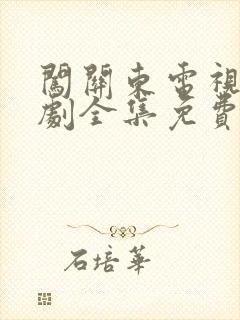 闖關東電視
劇全集免費
石培華